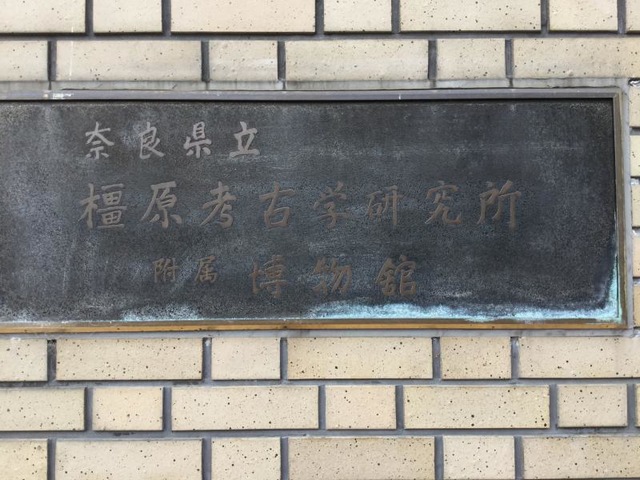 奈良県立
橿原考古学研究所
附属 博物館